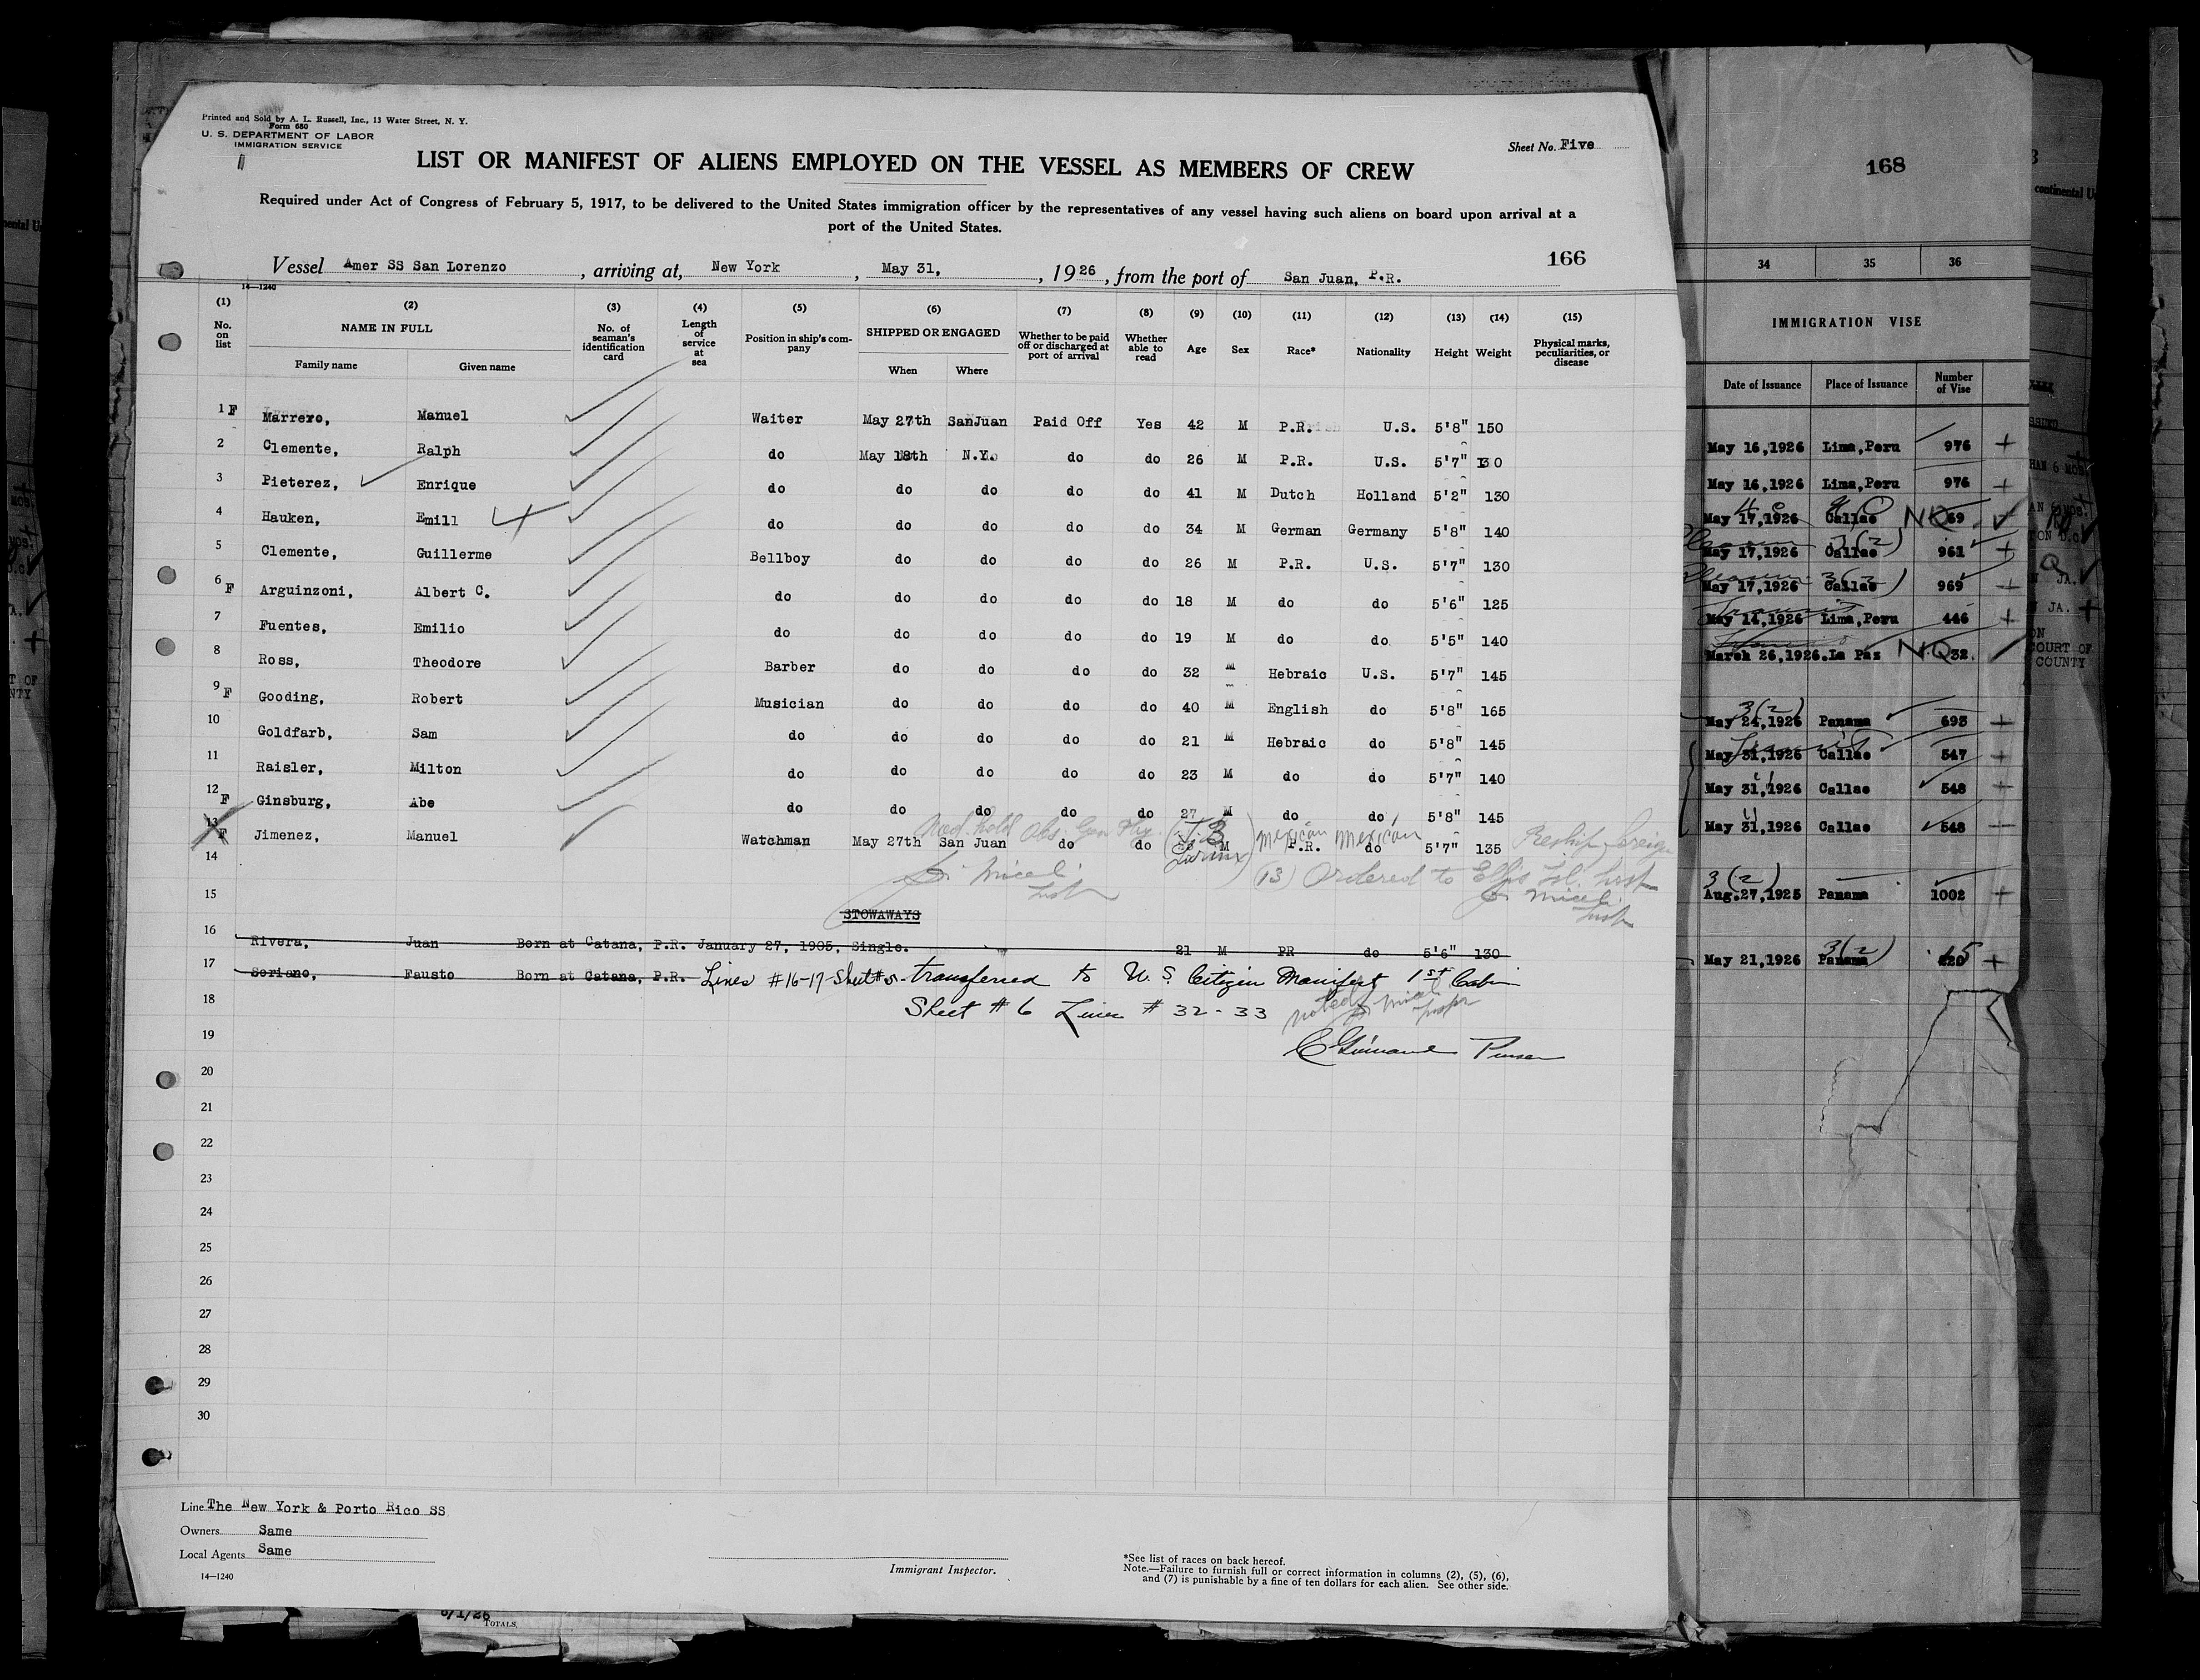 Printed and Sold by A. L. Russell, Inc., 13 Water Street, N. Y.
Form 680
U. S. DEPARTMENT OF LABOR
IMMIGRATION SERVICE
Sheet No. Five
LIST OR MANIFEST OF ALIENS EMPLOYED ON THE VESSEL AS MEMBERS OF CREW
Required under Act of Congress of February 5, 1917, to be delivered to the United States immigration officer by the representatives of any vessel having such aliens on board upon arrival at a
port of the United States.
166
Vessel Amer SS San Lorenzo, arriving at, New York, May 31, 1926, from the port of San Juan, P.R.
14—1240
(1) (2) (3) (4) (5) (6) (7) (8) (9) (10) (11) (12) (13) (14) (15)
No. on list NAME IN FULL No. of seaman's identification card Length of service at sea Position in ship's company SHIPPED OR ENGAGED Whether to be paid off or discharged at port of arrival Whether able to read Age Sex Race* Nationality Height Weight Physical marks, peculiarities, or disease
Family name Given name When Where
1 F Marrero, Manuel Waiter May 27th SanJuan Paid Off Yes 42 M P.R. U.S. 5'8" 150
2 Clemente, Ralph do May 18th N.Y. do do 26 M P.R. U.S. 5'7" 130
3 Pieterez, Enrique do do do do do 41 M Dutch Holland 5'2" 130
4 Hauken, Emill do do do do do 34 M German Germany 5'8" 140
5 Clemente, Guillerme Bellboy do do do do 26 M P.R. U.S. 5'7" 130
6 F Arguinzoni, Albert C. do do do do do 18 M do do 5'6" 125
7 Fuentes, Emilio do do do do do 19 M do do 5'5" 140
8 Ross, Theodore Barber do do do do 32 M Hebraic U.S. 5'7" 145
9 F Gooding, Robert Musician do do do do 40 M English do 5'8" 165
10 Goldfarb, Sam do do do do do 21 M Hebraic do 5'8" 145
11 Raisler, Milton do do do do do 23 M do do 5'7" 140
12 F Ginsburg, Abe do do do do do 27 M do do 5'8" 145
Med. hold Obs. Gen Phy. (T.B Larinx) Mexican Mexican Reship foreign
13 F Jimenez, Manuel Watchman May 27th San Juan do do M P.R. do 5'7" 135
14
(13) Ordered to Ellis Isl. hosp
Miceli
Insp
Miceli
Insp
15
STOWAWAYS
16 Rivera, Juan Born at Catana, P.R. January 27, 1905, Single. 21 M PR do 5'6" 130
17 Soriano, Fausto Born at Catana, P.R. Lines #16-17 Sheet #5. transferred to U.S. Citizen Manifest 1st Cabin
18 Sheet #6 Lines #32-33
noted
Miceli
Inspr
19
Purser
20
21
22
23
24
25
26
27
28
29
30
Line The New York & Porto Rico SS
Owners Same
Local Agents Same
14—1240
Immigrant Inspector.
*See list of races on back hereof.
Note.—Failure to furnish full or correct information in columns (2), (5), (6),
and (7) is punishable by a fine of ten dollars for each alien. See other side.
6/1/26
TOTALS
168
34 35 36
IMMIGRATION VISE
Date of Issuance Place of Issuance Number of Vise
May 16,1926 Lima,Peru 976
May 16,1926 Lima,Peru 976
May 17,1926 Callao NQ 69
May 17,1926 Callao 961
May 17,1926 Callao 969
May 14,1926 Lima,Peru 446
March 26,1926. La Paz NQ 32.
3(2)
May 24,1926 Panama 693
Transit
May 31,1926 Callao 547
May 31,1926 Callao 548
May 31,1926 Callao 548
3(2)
Aug.27,1925 Panama 1002
3(2)
May 21,1926 Panama
continental U
HAN 6 MOS.
JA.
JA.
COURT OF
COUNTY